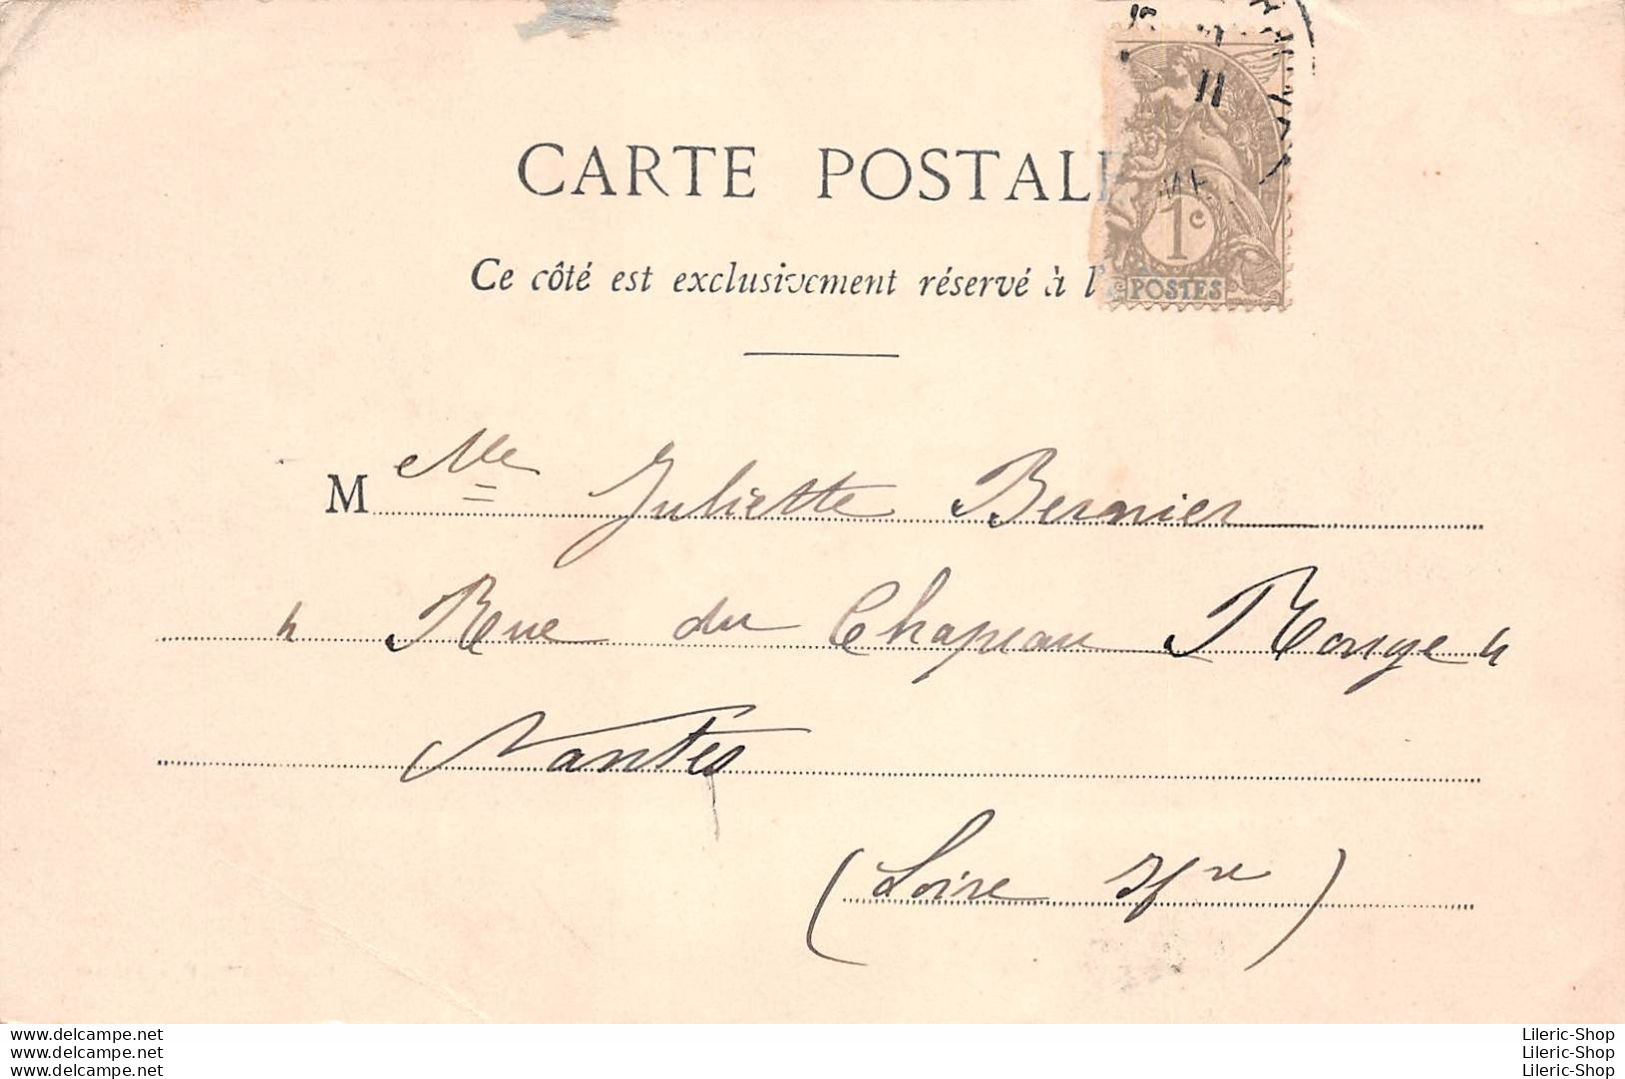 CARTE POSTALE
Ce côté est exclusivement réservé à l'
1c
POSTES
11
M elle Juliette Bernier
4 Rue du Chapeau Rouge 4
Nantes
(Loire Infre)
www.delcampe.net Lileric-Shop
www.delcampe.net Lileric-Shop
www.delcampe.net Lileric-Shop